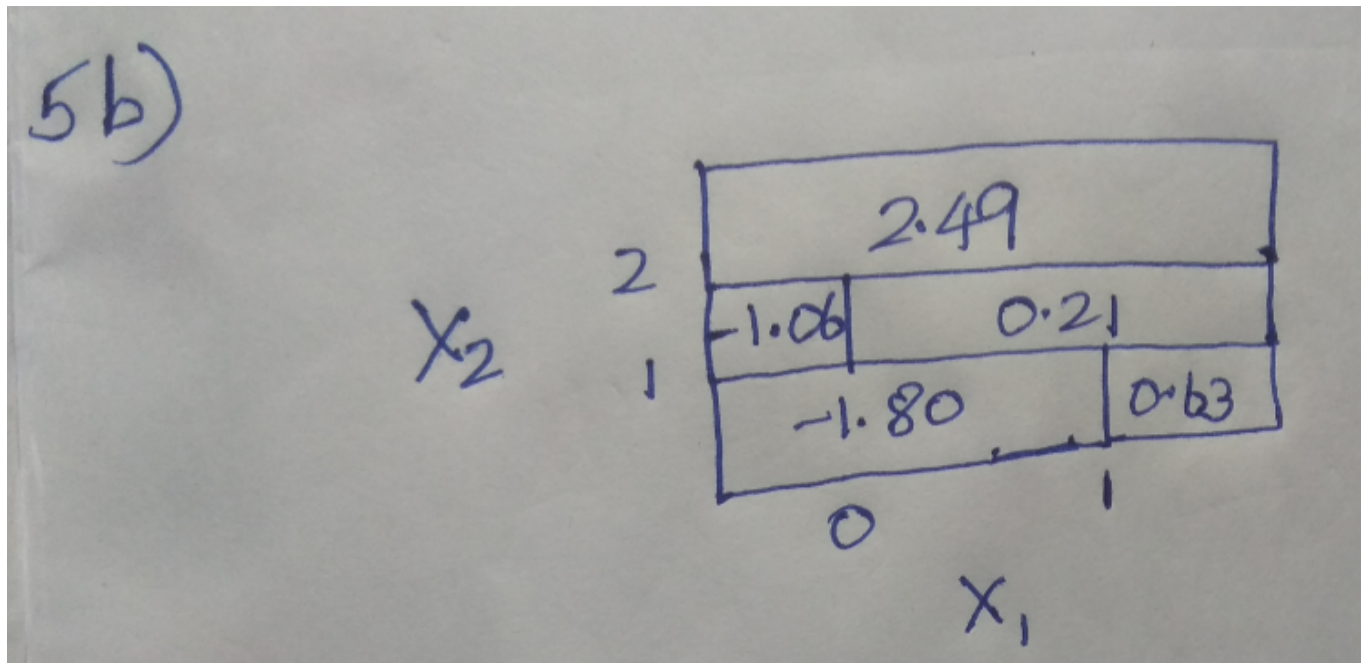 5b)
2.49
2
-1.06 0.21
X₂
1
-1.80 0.63
0 1
X₁